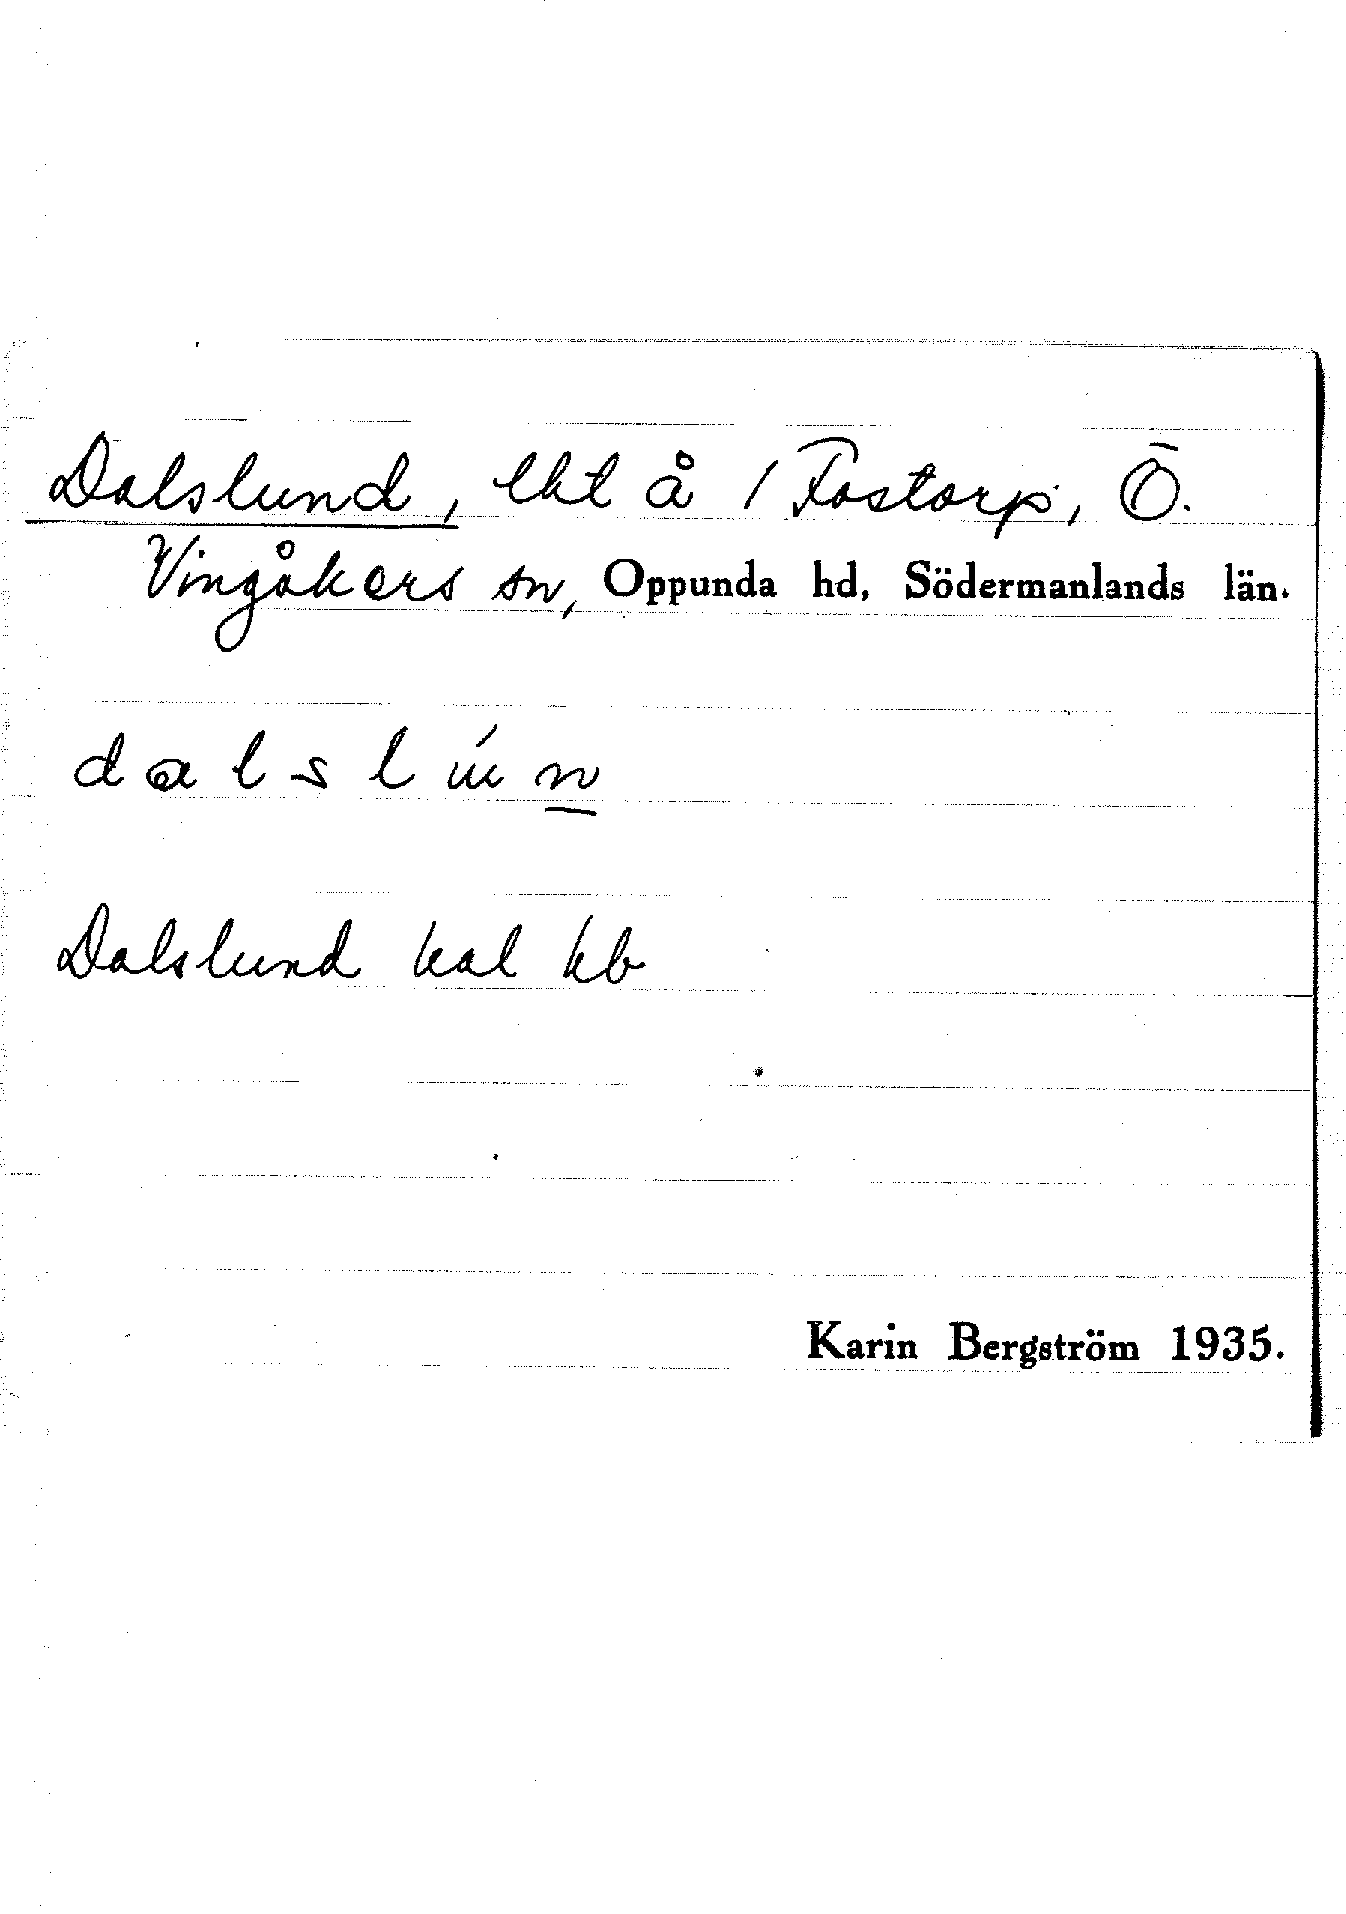 Dalslund, lht å 1 Fostorp, Ö.
Vingåkers sn, Oppunda hd, Södermanlands län.
dalslún
Dalslund kal kb
Karin Bergström 1935.